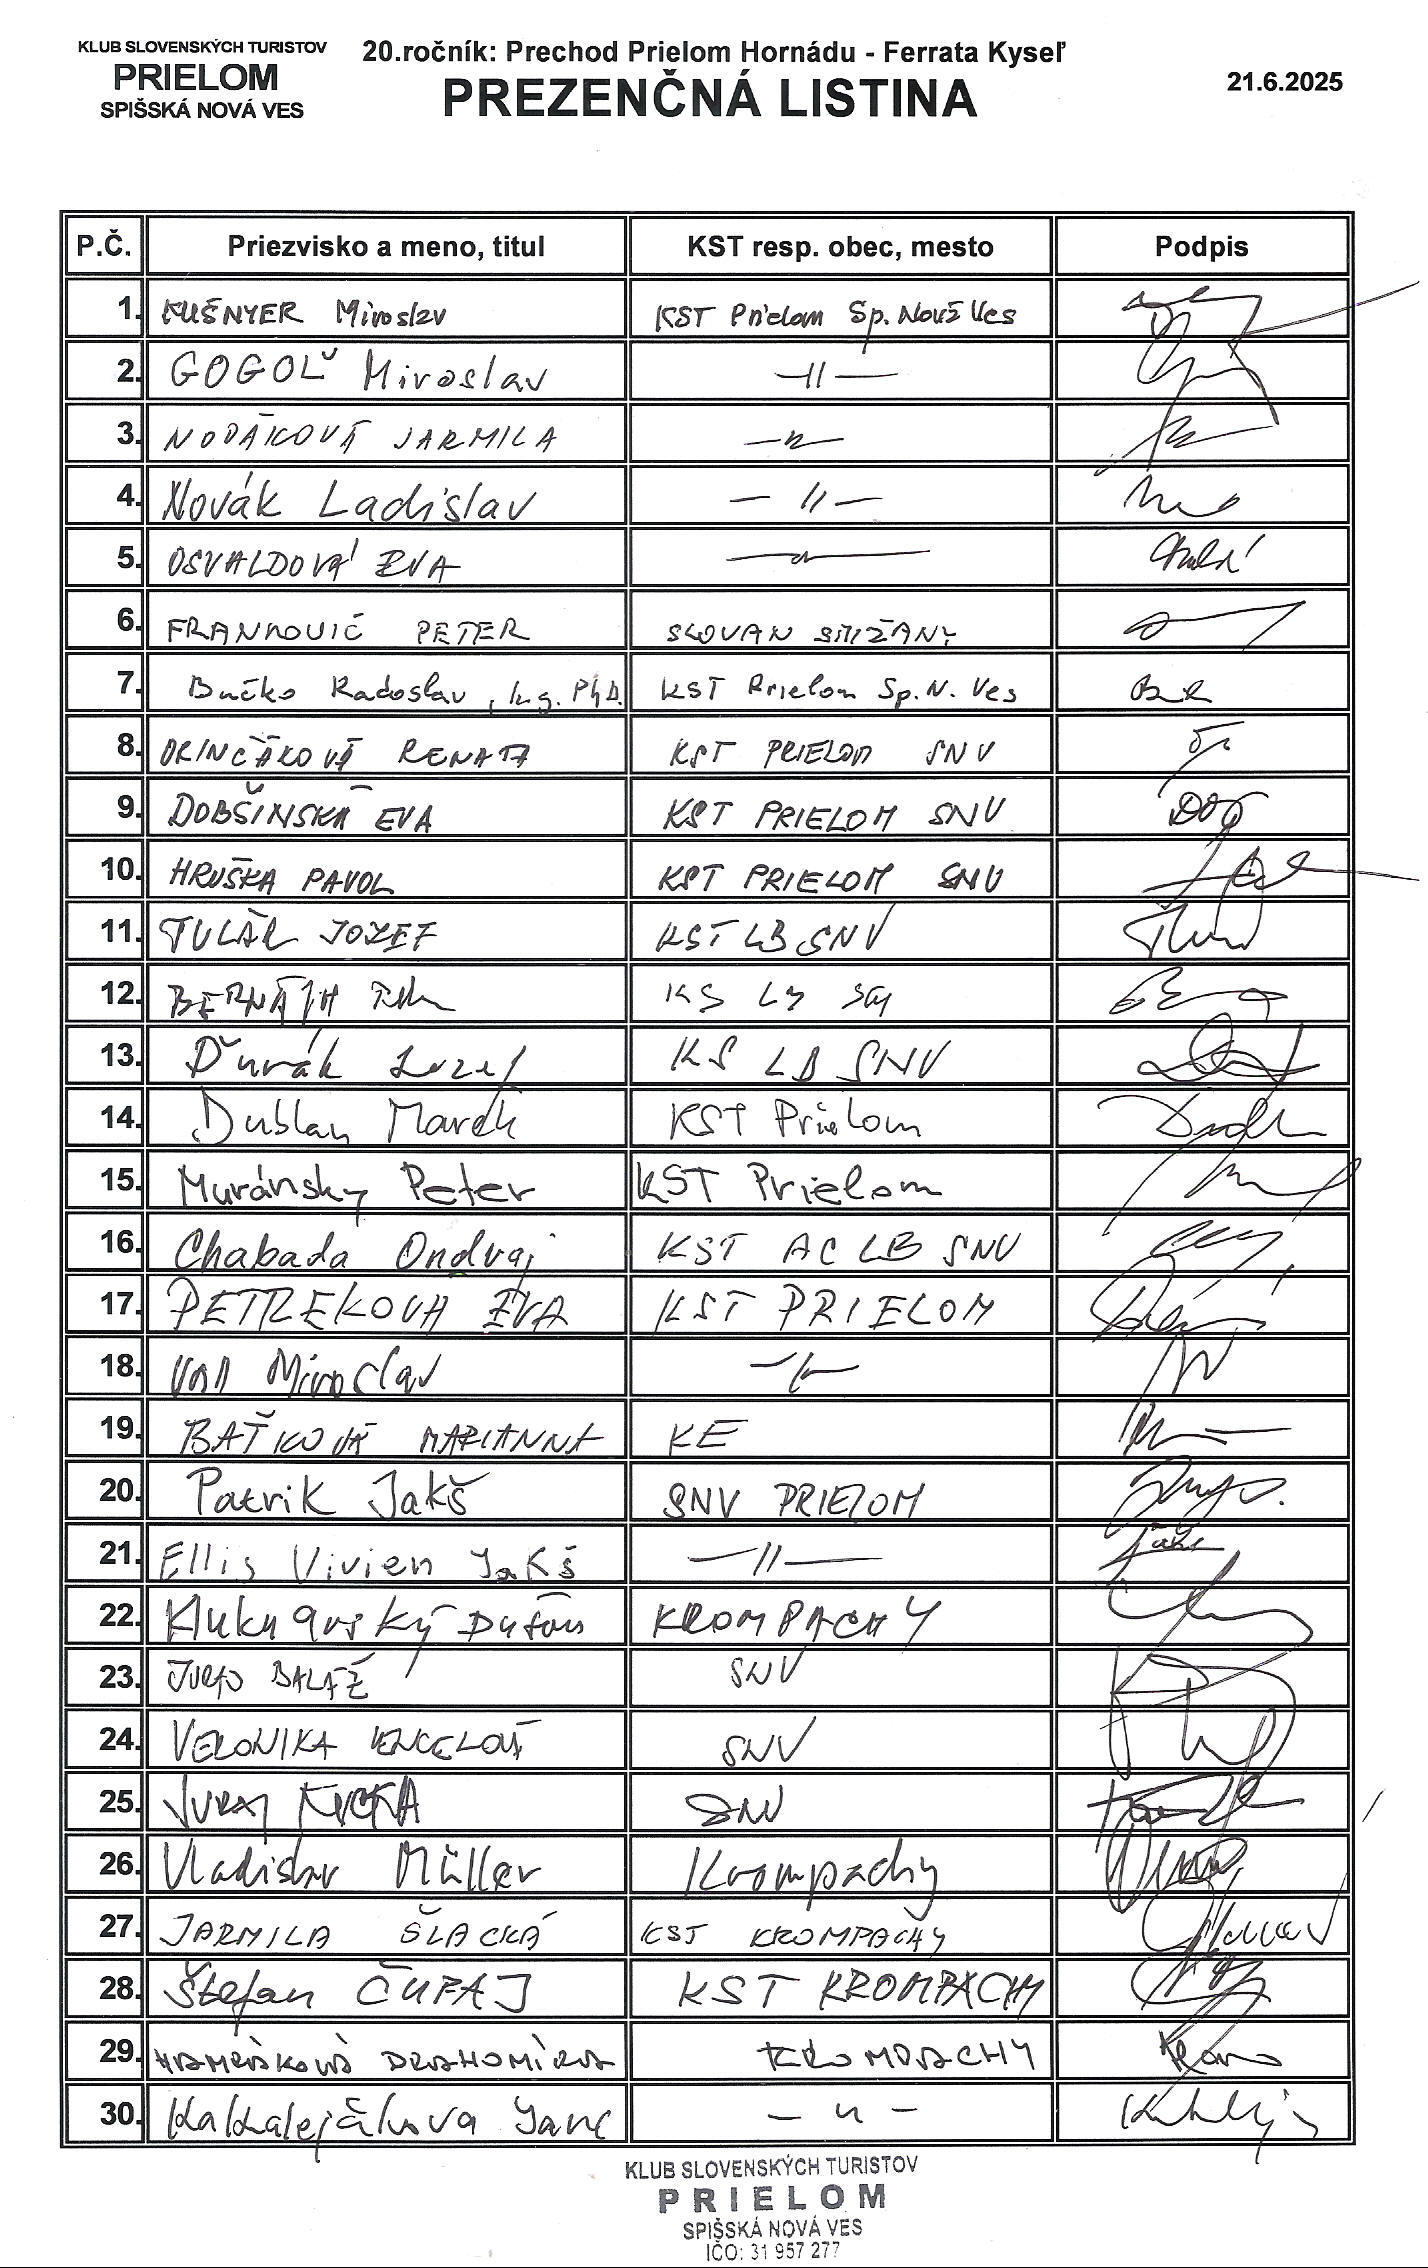 KLUB SLOVENSKÝCH TURISTOV
PRIELOM
SPIŠSKÁ NOVÁ VES
20.ročník: Prechod Prielom Hornádu - Ferrata Kyseľ
PREZENČNÁ LISTINA
21.6.2025
P.Č. Priezvisko a meno, titul KST resp. obec, mesto Podpis
1. KUŠNYER Miroslav KST Prielom Sp. Nová Ves
2. GOGOĽ Miroslav —II—
3. NOVÁKOVÁ JARMILA —"—
4. Novák Ladislav — II —
5. OSVALDOVÁ EVA —"—
6. FRANKOVIČ PETER SLOVAN SMIŽANY
7. Bučko Radoslav, Ing. PhD. KST Prielom Sp. N. Ves
8. ORINČÁKOVÁ RENATA KST PRIELOM SNV
9. DOBŠINSKÁ EVA KST PRIELOM SNV
10. HRUŠKA PAVOL KST PRIELOM SNV
11. TULÁK JOZEF KST LB SNV
12. BERNÁTH KS LB
13. Ďurák Jozef KS LB SNV
14. Dublan Marek KST Prielom
15. Muránsky Peter KST Prielom
16. Chabada Ondrej KST AC LB SNV
17. PETREKOVÁ EVA KST PRIELOM
18. Miroslav —"—
19. BAŤKOVÁ MARIANNA KE
20. Patrik Jakš SNV PRIELOM
21. Ellis Vivien Jakš —II—
22. Kluknavský Dušan KROMPACHY
23. JURAJ BALÁŽ SNV
24. VERONIKA VENCELOVÁ SNV
25. JURAJ SNV
26. Vladislav Müller Krompachy
27. JARMILA ŠLACKÁ KST KROMPACHY
28. Štefan ČUPAJ KST KROMPACHY
29. DRAHOMÍRA KROMPACHY
30. Kakalejčíkova Jana — " —
KLUB SLOVENSKÝCH TURISTOV
PRIELOM
SPIŠSKÁ NOVÁ VES
IČO: 31 957 277